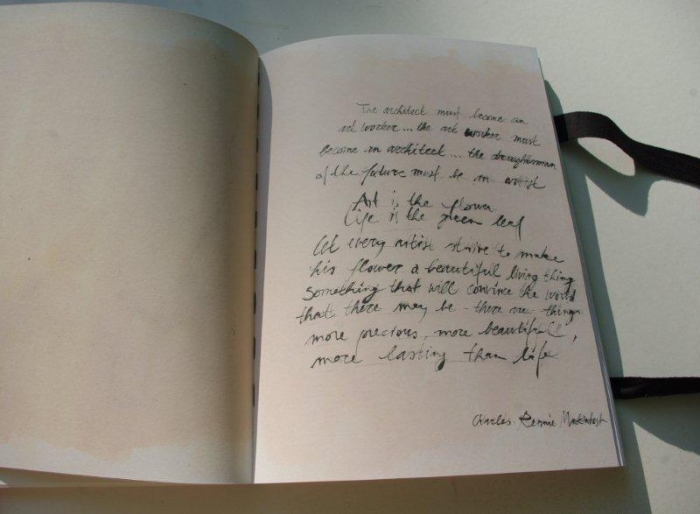 The architect must become an
art worker... the art worker must
become an architect... the draughtsman
of the future must be an artist
Art is the flower
Life is the green leaf
let every artist strive to make
his flower a beautiful living thing
something that will convince the world
that there may be - there are things
more precious, more beautiful,
more lasting than life
Charles Rennie Mackintosh